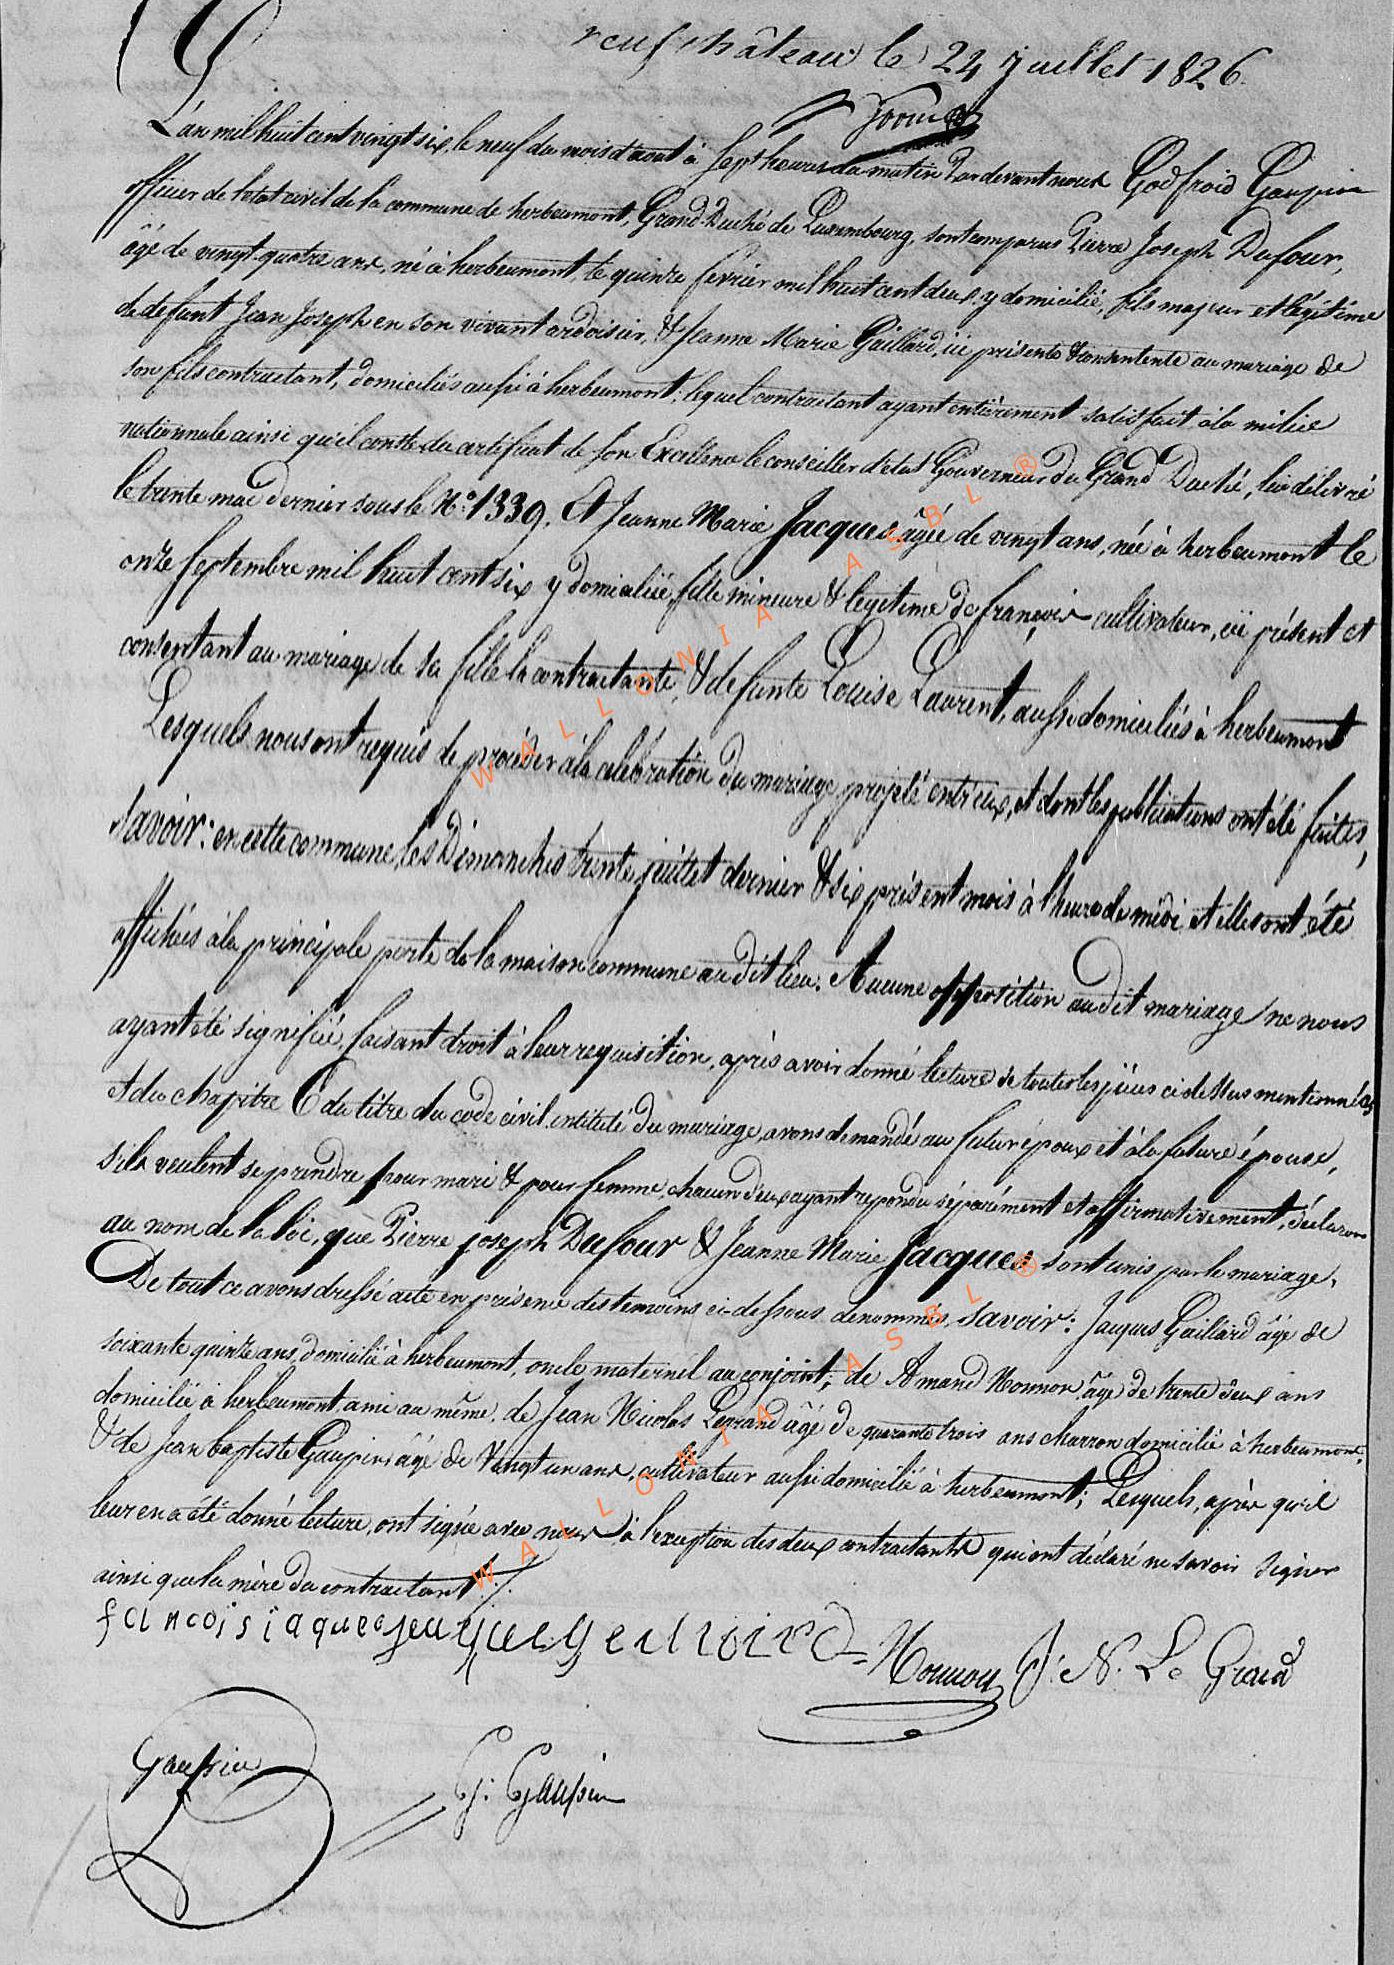 neufchâteau le 24 juillet 1826.
L'an mil huit cent vingt six, le neuf du mois d'aout à sept heures du matin Par devant nous Godfroid Gaupin
officier de l'etat civil de la commune de herbeumont, Grand-Duché de Luxembourg, sont comparus Pierre Joseph Dufour,
âgé de vingt-quatre ans, né à herbeumont, le quinze fevrier mil huit cent deux, y domicilié, fils majeur et légitime
de defunt Jean Joseph en son vivant ardoisier, & Jeanne Marie Gaillard, ici présente & consentente au mariage de
son fils contractant, domiciliés aussi à herbeumont, lequel contractant ayant entièrement satisfait à la milice
nationnale ainsi qu'il conste du certificat de son Excellence le conseiller d'etat Gouverneur du Grand Duché, lui délivré
le trente mai dernier sous le N° 1339. Et Jeanne Marie Jacques âgée de vingt ans, née à herbeumont le
onze septembre mil huit cent six y domiciliée, fille mineure & legitime de françois cultivateur, ici présent et
consentant au mariage de sa fille la contractante, & defunte Louise Laurent, aussi domiciliés à herbeumont
Lesquels nous ont requis de procéder à la celébration du mariage projeté entr'eux, et dont les publications ont été faites,
Savoir: en cette commune, les Dimanches trente juillet dernier & six présent mois à l'heure de midi et elles ont été
affichées à la principale porte de la maison commune au dit lieu. Aucune opposition au dit mariage ne nous
ayant été signifiée, faisant droit à leur requisition, après avoir donné lecture de toutes les pièces ci dessus mentionnées
et du chapitre 6 du titre du code civil intitulé du mariage, avons demandé au futur époux et à la future épouse,
s'ils veulent se prendre pour mari & pour femme, chacun d'eux ayant repondu séparément et affirmativement, déclarons
au nom de la loi, que Pierre joseph Dufour & Jeanne Marie Jacques sont unis par le mariage.
De tout ce avons dressé acte en présence des temoins ci-dessous denommés, savoir: Jacques Gaillard âgé de
soixante quinze ans, domicilié à herbeumont, oncle maternel au conjoint; de Amand Nonnon âgé de trente deux ans
domicilié à herbeumont, ami au même. de Jean Nicolas Legrand âgé de quarante trois ans charron domicilié à herbeumont,
& de Jean baptiste Gaupin âgé de Vingt un ans, cultivateur aussi domicilié à herbeumont; Lesquels, après qu'il
leur en a été donné lecture, ont signé avec nous à l'exception des deux contractants qui ont déclaré ne savoir signer
ainsi que la mère du contractant ./.
francois iaques Nonnon J: N. Le Grand
Gaupin G: Gaupin
WALLONIA ASBL ®
WALLONIA ASBL ®